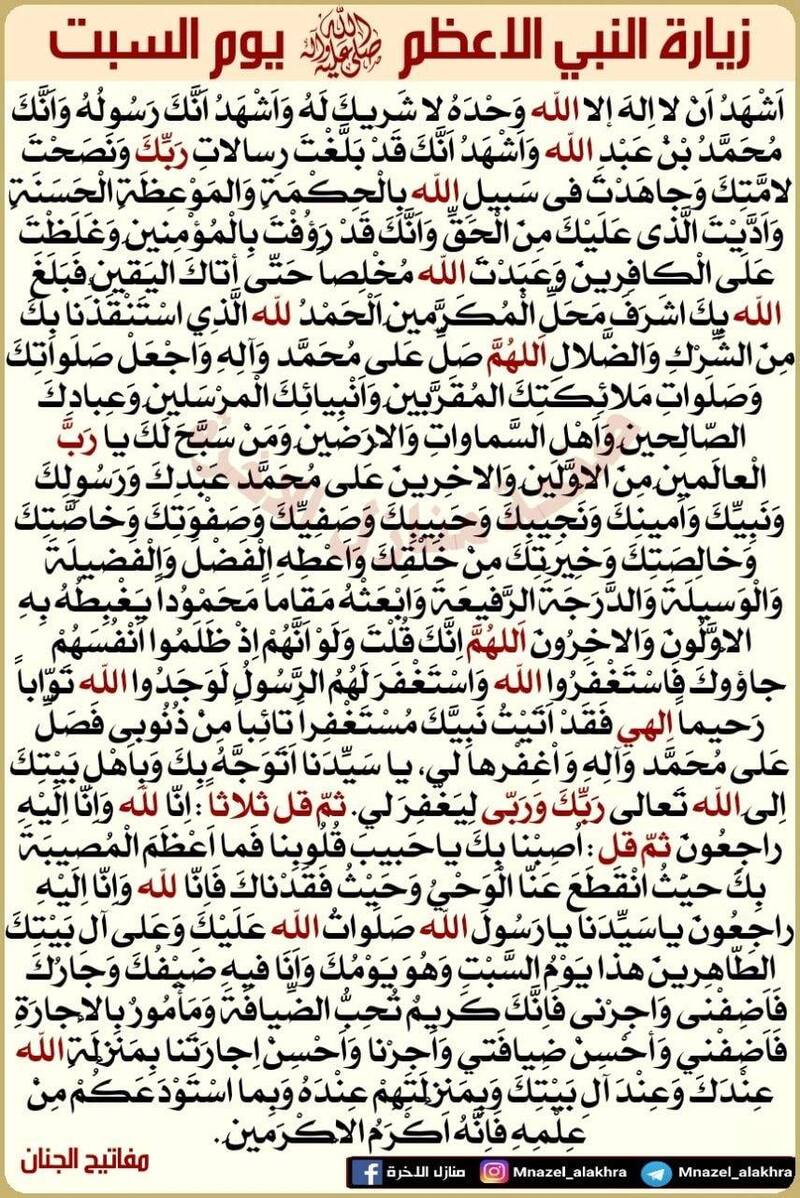 زيارة النبي الاعظم ﷺ يوم السبت
اَشْهَدُ اَنْ لا اِلهَ إلا اللّٰه وَحْدَهُ لا شَريكَ لَهُ وَاَشْهَدُ اَنَّكَ رَسُولُهُ وَاَنَّكَ
مُحَمَّدُ بْنُ عَبْدِ اللّٰه وَاَشْهَدُ اَنَّكَ قَدْ بَلَّغْتَ رِسالاتِ رَبِّكَ وَنَصَحْتَ
لامَّتِكَ وَجاهَدْتَ فى سَبيلِ اللّٰه بِالْحِكْمَةِ وَالْمَوْعِظَةِ الْحَسَنَةِ
وَاَدَّيْتَ الَّذى عَلَيْكَ مِنَ الْحَقِّ وَاَنَّكَ قَدْ رَؤُفْتَ بِالْمُؤْمِنينَ وَغَلَظْتَ
عَلَى الْكافِرينَ وَعَبَدْتَ اللّٰه مُخْلِصاً حَتّى أتاكَ اليَقينُ فَبَلَغَ
اللّٰه بِكَ اشَرَفَ مَحَلِّ الْمُكَرَّمينَ اَلْحَمْدُ للّٰه الَّذِي اسْتَنْقَذَنا بِكَ
مِنَ الشِّرْكِ وَالضَّلالِ اَللهُمَّ صَلِّ عَلى مُحَمَّد وَآلِهِ وَاجْعَلْ صَلَواتِكَ
وَصَلَواتِ مَلائِكَتِكَ المُقَرَّبينَ وَاَنْبِيائِكَ الْمرْسَلينَ وَعِبادِكَ
الصّالِحينَ وَاَهْلِ السَّماواتِ وَالارَضينَ وَمَنْ سَبَّحَ لَكَ يا رَبَّ
الْعالَمينَ مِنَ الاوَّلينَ وَالاخرينَ عَلى مُحمَّد عَبْدِكَ وَرَسُولِكَ
وَنَبِيِّكَ وَاَمينِكَ وَنَجيبِكَ وَحَبيبِكَ وَصَفِيِّكَ وَصَفْوَتِكَ وَخاصَّتِكَ
وَخالِصَتِكَ وَخِيرَتِكَ مِنْ خَلْقِكَ وَاَعْطِهِ الْفَضْلَ وَالْفَضيلَةَ
وَالْوَسيلَةَ وَالدَّرَجَةَ الرَّفيعَةَ وَابْعَثْهُ مَقاماً مَحَمْوُداً يَغْبِطُهُ بِهِ
الاوَّلُونَ وَالاخِرُونَ اَللهُمَّ اِنَّكَ قُلْتَ وَلَوْ اَنَّهُمْ اِذْ ظَلَمُوا اَنْفُسَهُمْ
جاؤوكَ فَاسْتَغْفَرُوا اللّٰه وَاسْتَغْفَرَ لَهُمُ الرَّسُولُ لَوَجَدُوا اللّٰه تَوّاباً
رَحيماً اِلهي فَقَدْ اَتَيْتُ نَبِيَّكَ مُسْتَغْفِراً تائِباً مِنْ ذُنُوبى فَصَلِّ
عَلى مُحَمَّد وَآلِهِ وَاْغفِرْها لي، يا سَيِّدَنا اَتَوَجَّهُ بِكَ وَبِاَهْلِ بَيْتِكَ
اِلَى اللّٰه تَعالى رَبِّكَ وَرَبّى لِيَغْفِرَ لي. ثمّ قل ثلاثاً : اِنّا للّٰه وَاِنّا اِلَيْهِ
راجِعُونَ ثمّ قل : اُصِبْنا بِكَ يا حَبيبَ قُلُوبِنا فَما اَعْظَمَ الْمُصيبَةَ
بِكَ حيْثُ انْقَطَعَ عَنّا الْوَحْيُ وَحَيْثُ فَقَدْناكَ فَاِنّا للّٰه وَاِنّا اِلَيْهِ
راجِعُونَ ياسَيِّدَنا يارَسُولَ اللّٰه صَلَواتُ اللّٰه عَلَيْكَ وَعَلى آلِ بَيْتِكَ
الطّاهِرينَ هذا يَوْمُ السَّبْتِ وَهُوَ يَوْمُكَ وَاَنَا فيهِ ضَيْفُكَ وَجارُكَ
فَاَضِفْنى وَاجِرْنى فَاِنَّكَ كَريمٌ تُحِبُّ الضِّيافَةَ وَمَأْمُورٌ بِالاِجارَةِ
فَاَضِفْني وَأحْسِنْ ضِيافَتي وَاَجِرْنا وَاَحْسِنْ اِجارَتَنا بِمَنْزِلَةِ اللّٰه
عِنْدَكَ وَعِنْدَ آلِ بَيْتِكَ وَبِمَنزِلَتِهِمْ عِنْدَهُ وَبِما اسْتَوْدَعَكُمْ مِنْ
عِلْمِهِ فَاِنَّهُ اَكْرَمُ الاكْرَمينَ.
مفاتيح الجنان
منازل الاخرة Mnazel_alakhra Mnazel_alakhra